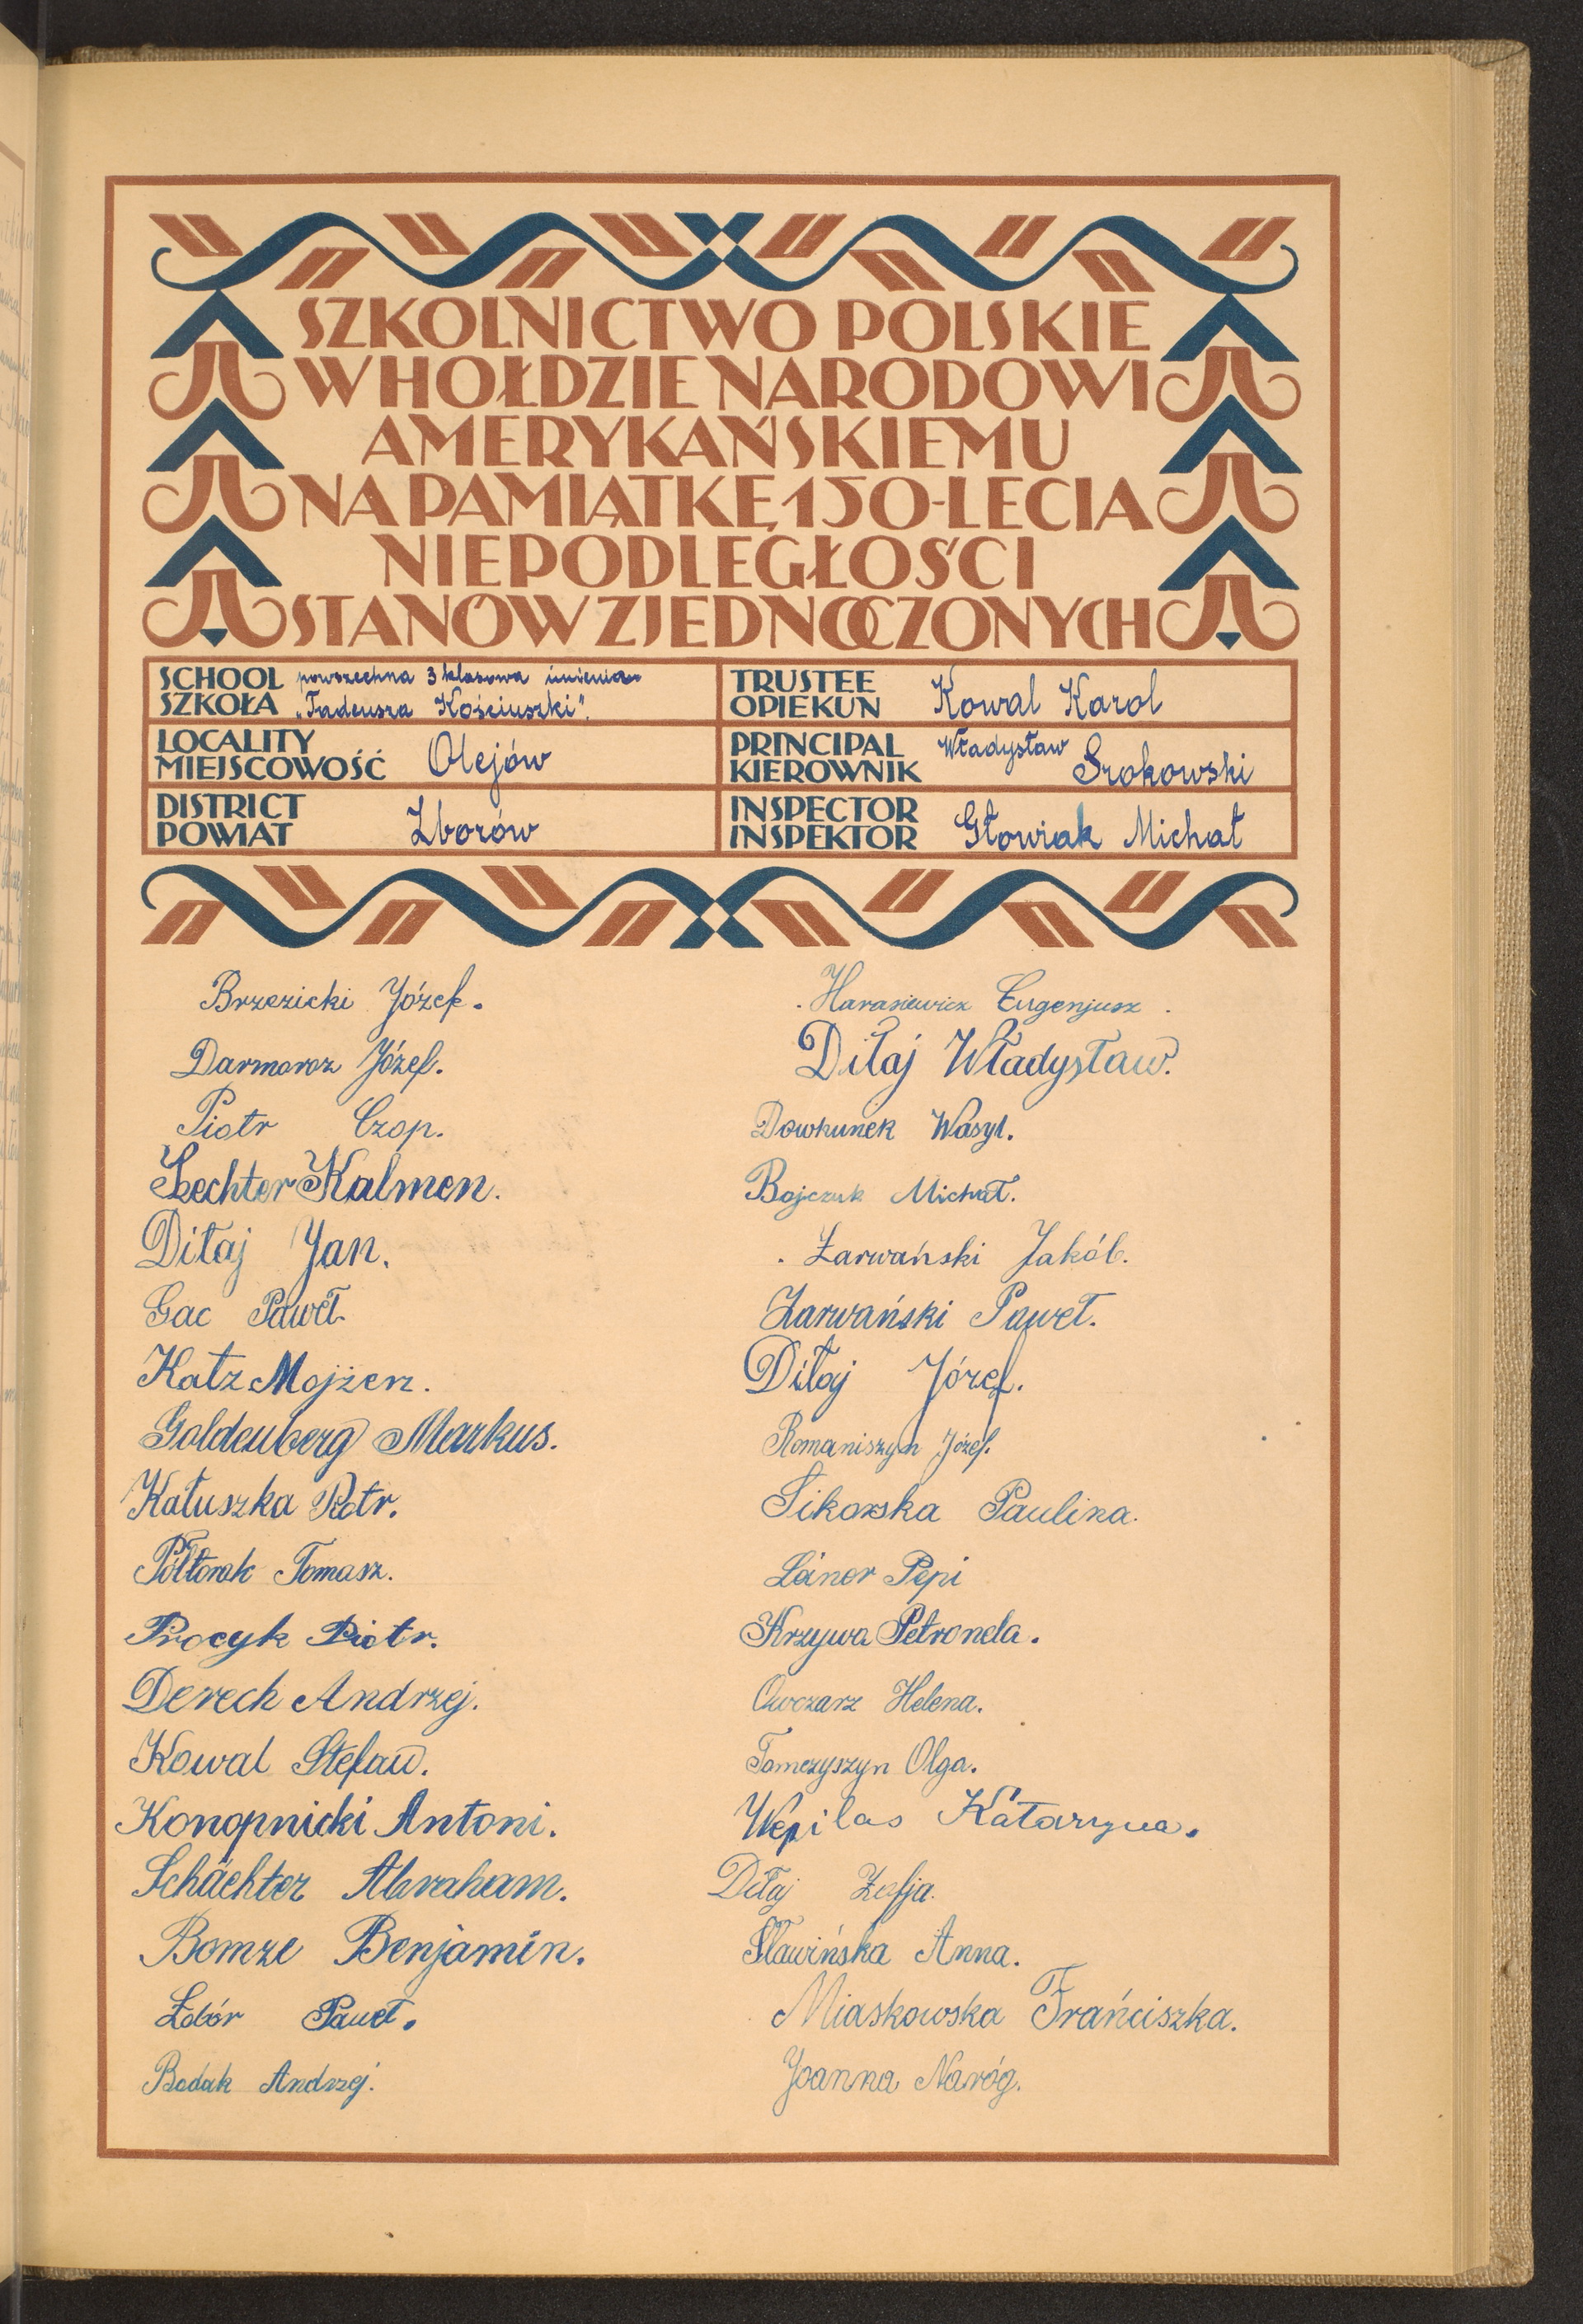 SZKOLNICTWO POLSKIE
W HOŁDZIE NARODOWI
AMERYKAŃSKIEMU
NA PAMIĄTKĘ 150-LECIA
NIEPODLEGŁOŚCI
STANÓW ZJEDNOCZONYCH
SCHOOL
SZKOŁA
powszechna 3 klasowa imienia
„Tadeusza Kościuszki".
TRUSTEE
OPIEKUN
Kowal Karol
LOCALITY
MIEJSCOWOŚĆ
Olejów
PRINCIPAL
KIEROWNIK
Władysław Srokowski
DISTRICT
POWIAT
Zborów
INSPECTOR
INSPEKTOR
Głowiak Michał
Brzezicki Józef.
Darmoroz Józef.
Piotr Czop.
Szechter Kalmen.
Diłaj Jan.
Gac Paweł
Katz Mojżesz.
Goldenberg Markus.
Kałuszka Piotr.
Półtorak Tomasz.
Procyk Piotr.
Derech Andrzej.
Kowal Stefan.
Konopnicki Antoni.
Schächter Abraham.
Bomze Benjamin.
Zabór Paweł.
Bodak Andrzej.
Harasiewicz Eugenjusz.
Diłaj Władysław.
Dowhunek Wasyl.
Bojczuk Michał.
Zarwański Jakób.
Zarwański Paweł.
Diłaj Józef.
Romaniszyn Józef.
Sikorska Paulina.
Pepi
Krzywa Petronela.
Owczarz Helena.
Tomczyszyn Olga.
Katarzyna.
Diłaj Zofja.
Sławińska Anna.
Miaskowska Frańciszka.
Joanna Naróg.